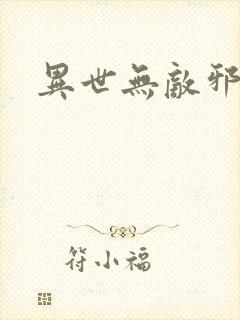 異世無敵邪
符小福